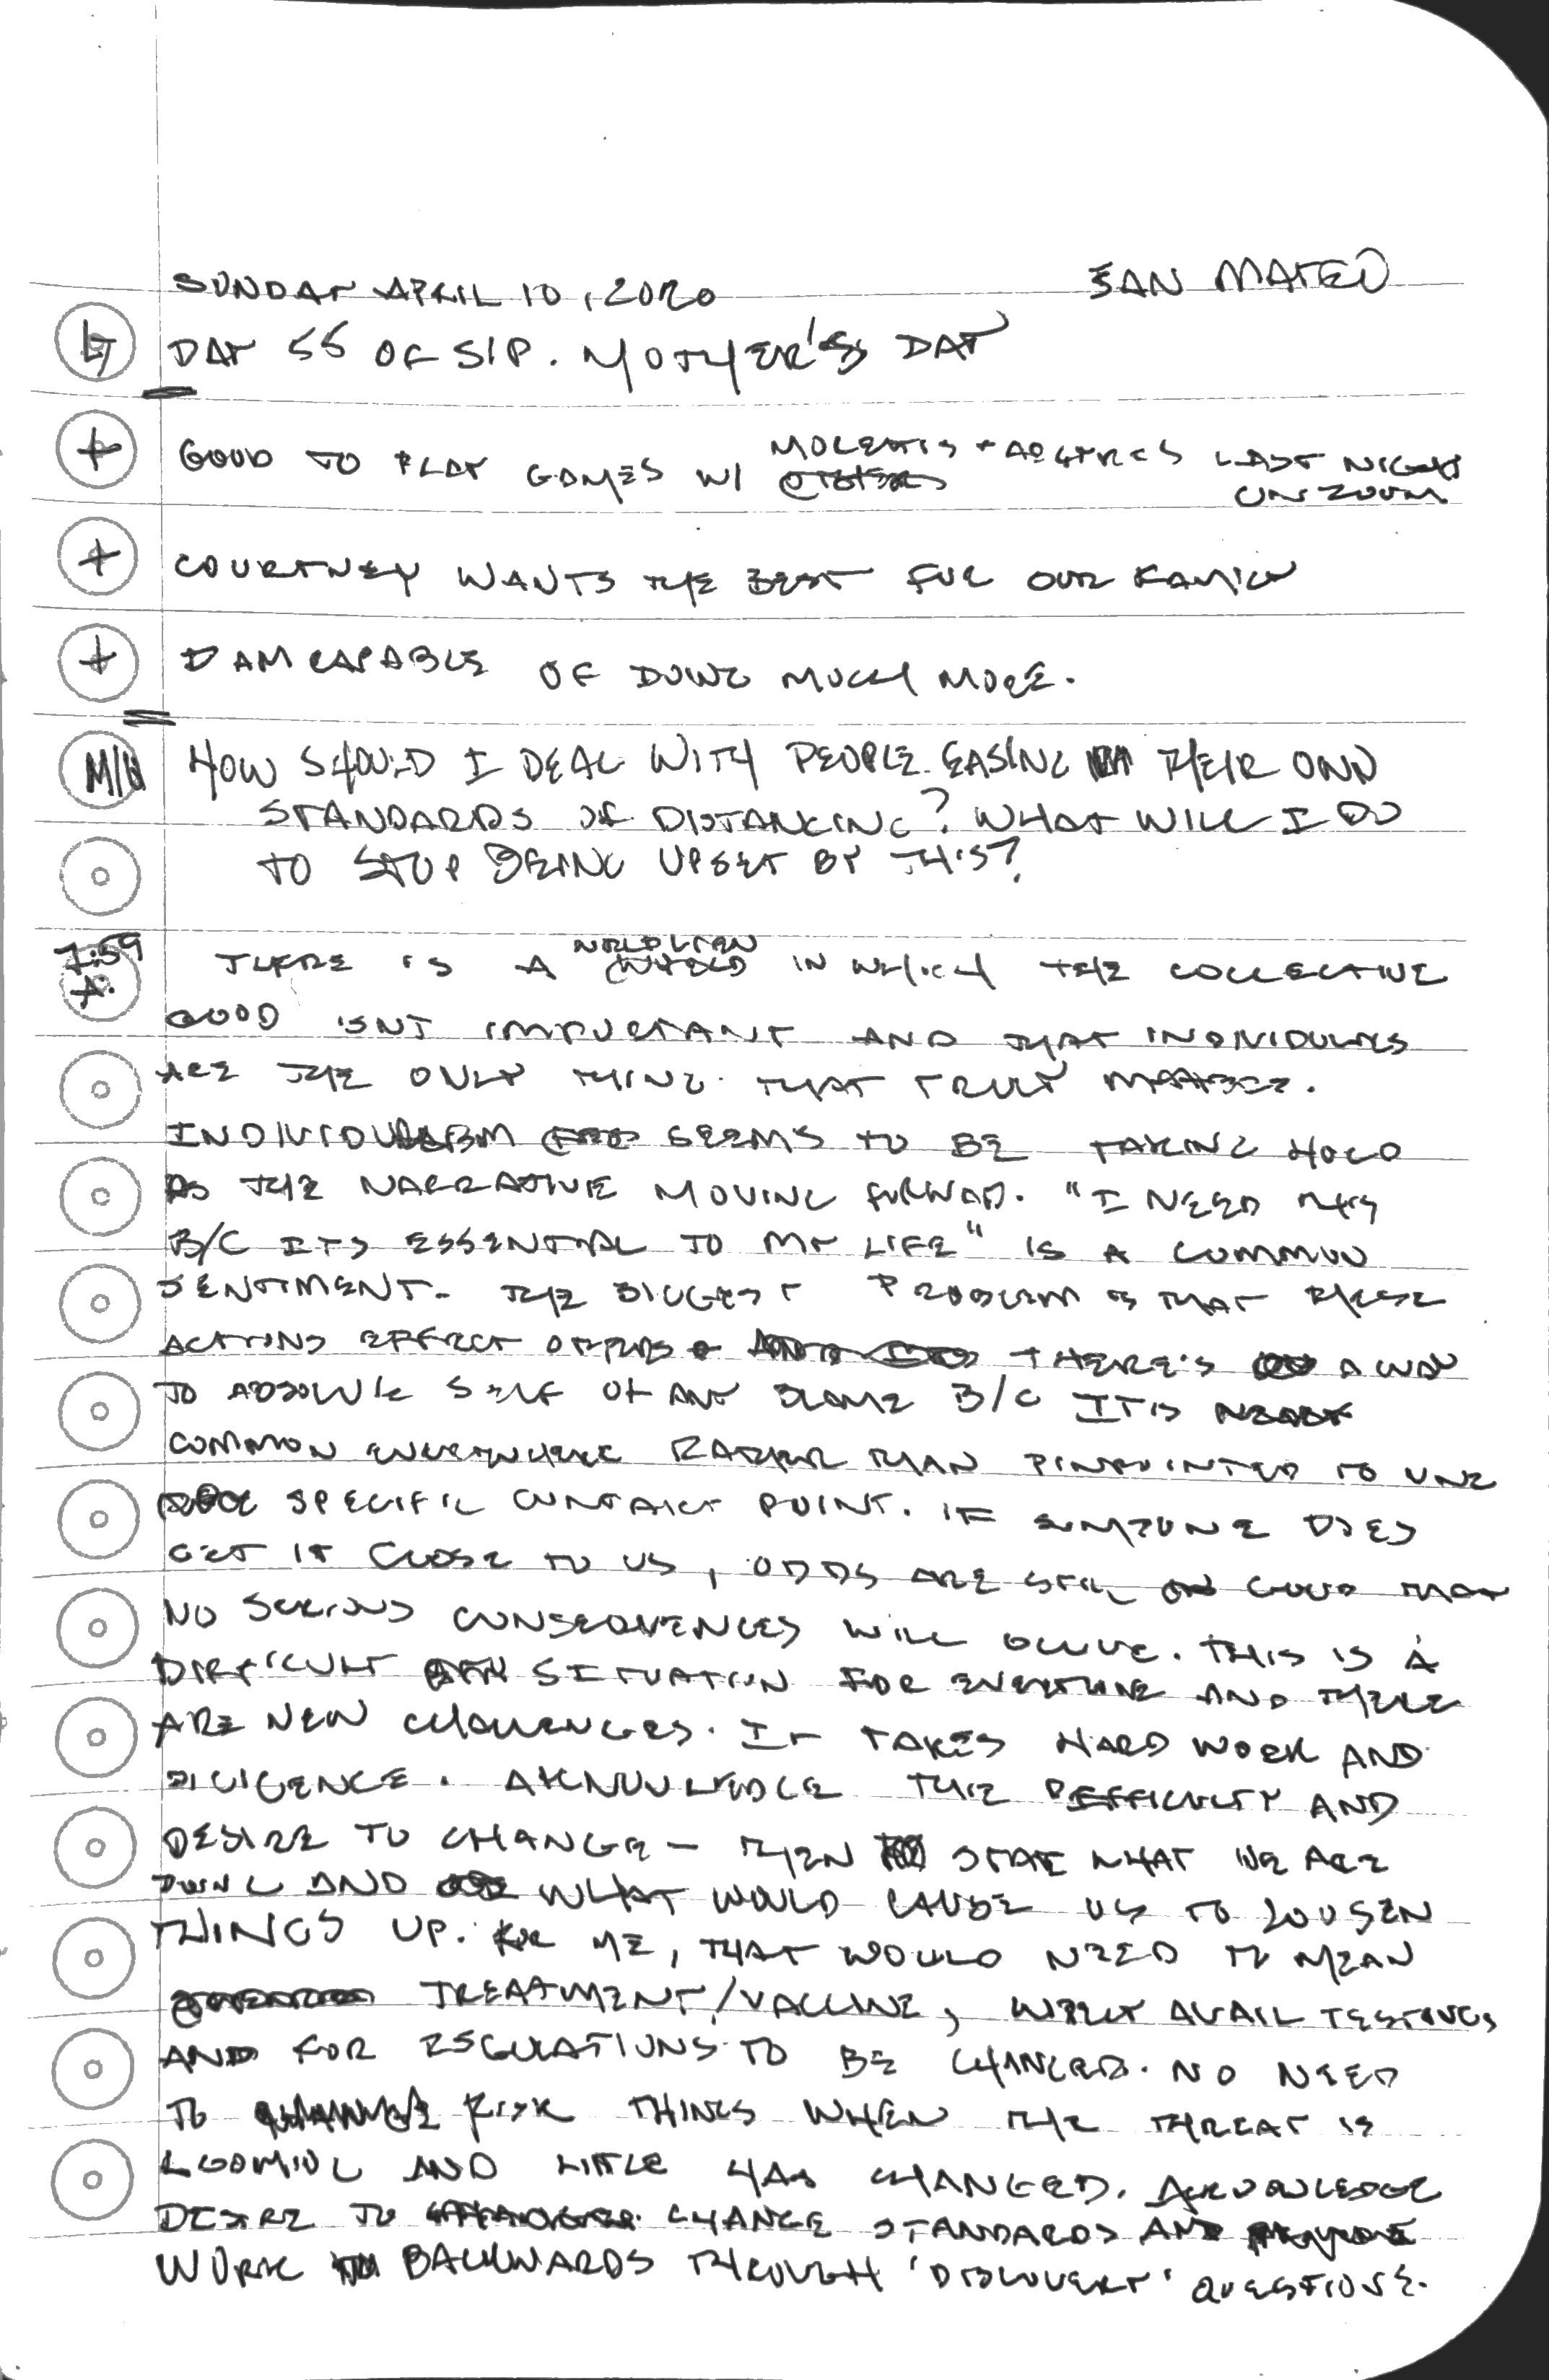 SUNDAY APRIL 10, 2020 SAN MATEO
DAY 55 OF SIP. MOTHER'S DAY
+ GOOD TO PLAY GAMES W/ LAST NIGHT
ON ZOOM
+ COURTNEY WANTS THE BEST FOR OUR FAMILY
+ I AM CAPABLE OF DOING MUCH MORE.
HOW SHOULD I DEAL WITH PEOPLE EASING THEIR OWN
STANDARDS OF DISTANCING? WHAT WILL I DO
TO STOP BEING UPSET BY THIS?
7:59
A. THERE IS A WORLD VIEW IN WHICH THE COLLECTIVE
GOOD ISNT IMPORTANT AND THAT INDIVIDUALS
ARE THE ONLY THING THAT TRULY MATTER.
INDIVIDUALISM SEEMS TO BE TAKING HOLD
AS THE NARRATIVE MOVING FORWARD. "I NEED THIS
B/C ITS ESSENTIAL TO MY LIFE" IS A COMMON
SENTIMENT. THE BIGGEST PROBLEM IS THAT THESE
ACTIONS EFFECT OTHERS THERE'S A WAY
TO ABSOLVE SELF OF ANY BLAME B/C IT IS
COMMON EVERYWHERE RATHER THAN PINPOINTED TO ONE
SPECIFIC CONTACT POINT. IF SOMEONE DOES
GET IT CLOSE TO US, ODDS ARE STILL GOOD THAT
NO SERIOUS CONSEQUENCES WILL OCCUR. THIS IS A
DIFFICULT SITUATION FOR EVERYONE AND THERE
ARE NEW CHALLENGES. IT TAKES HARD WORK AND
DILIGENCE. ACKNOWLEDGE THE DIFFICULTY AND
DESIRE TO CHANGE - THEN STATE WHAT WE ARE
DOING AND WHAT WOULD CAUSE US TO LOOSEN
THINGS UP. FOR ME, THAT WOULD NEED TO MEAN
TREATMENT/VACCINE, WIDELY AVAIL TESTING,
AND FOR REGULATIONS TO BE CHANGED. NO NEED
TO RISK THINGS WHEN THE THREAT IS
LOOMING AND LITTLE HAS CHANGED. ACKNOWLEDGE
DESIRE TO CHANGE STANDARDS AND
WORK BACKWARDS THROUGH 'DISCOVERY' QUESTIONS.